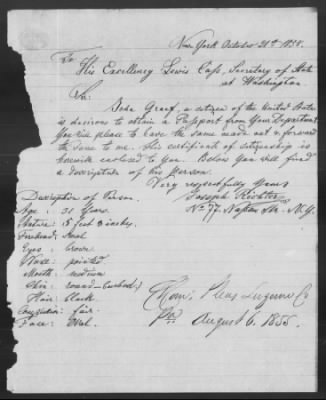 New York October 21th 1858.
To
His Excellency Lewis Cass, Secretary of State
at Washington
Sir:
John Graef, a citizen of the United States
is desirous to obtain a Passport from Your Department
You will please to have the same made out & forward
the same to me. His certificate of citizenship is
herewith enclosed to you. Below you will find
a description of his person.
Very respectfully Yours
Joseph Richter
No 77. Nassau Str. N.Y.
Description of Person.
Age : 31 Years.
Stature : 5 feet 3 inches.
Forehead : Small
Eyes : brown
Nose : pointed
Mouth : medium
Chin : round
Hair : black
Complexion : fair.
Face : Oval.
Com. Pleas Luzerne Co
Pa August 6. 1855.